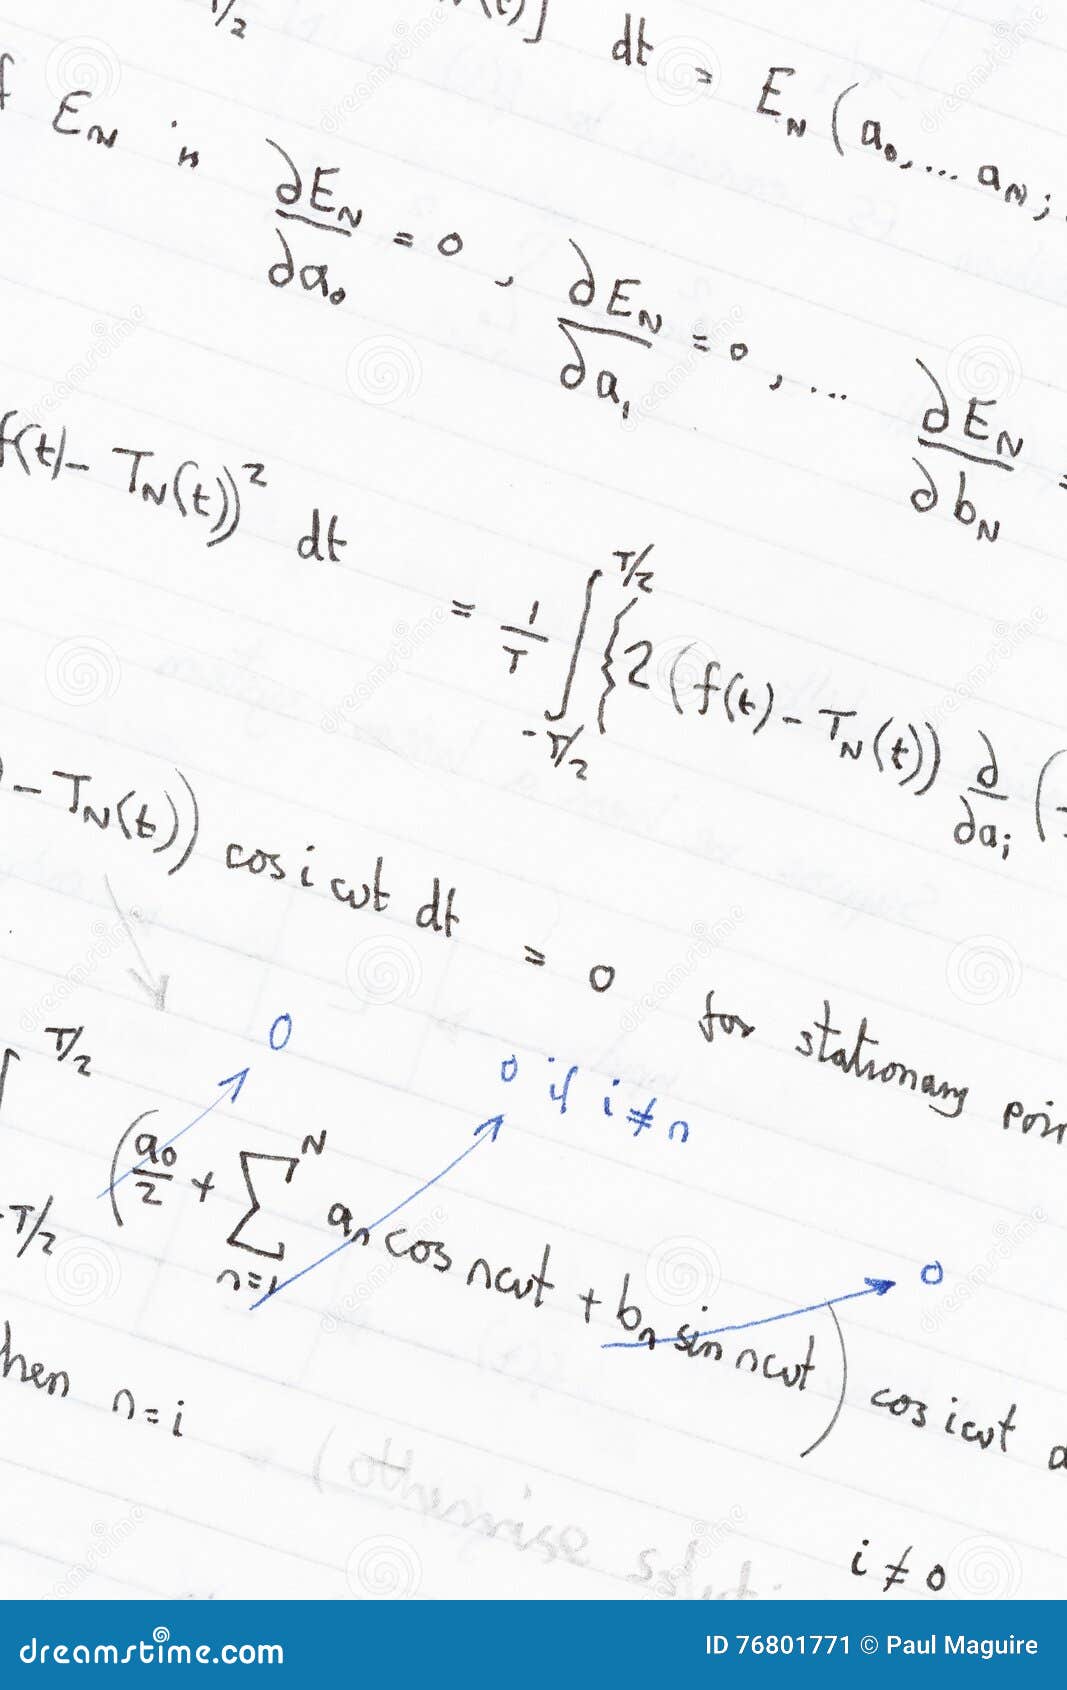 T/2 (t)] dt = E_N (a_0, ... a_N;
f E_N is ∂E_N/∂a_0 = 0, ∂E_N/∂a_1 = 0, ... ∂E_N/∂b_N =
f(t) - T_N(t))² dt = 1/T ∫_{-T/2}^{T/2} {2 (f(t) - T_N(t)) ∂/∂a_i (
) - T_N(t)) cos i ωt dt = 0 for stationary poin
0
0 if i ≠ n
∫_{-T/2}^{T/2} (a_0/2 + ∑_{n=1}^{N} a_n cos nωt + b_n sin nωt) cos iωt d
0
hen n = i
i ≠ 0
dreamstime.com
ID 76801771 © Paul Maguire